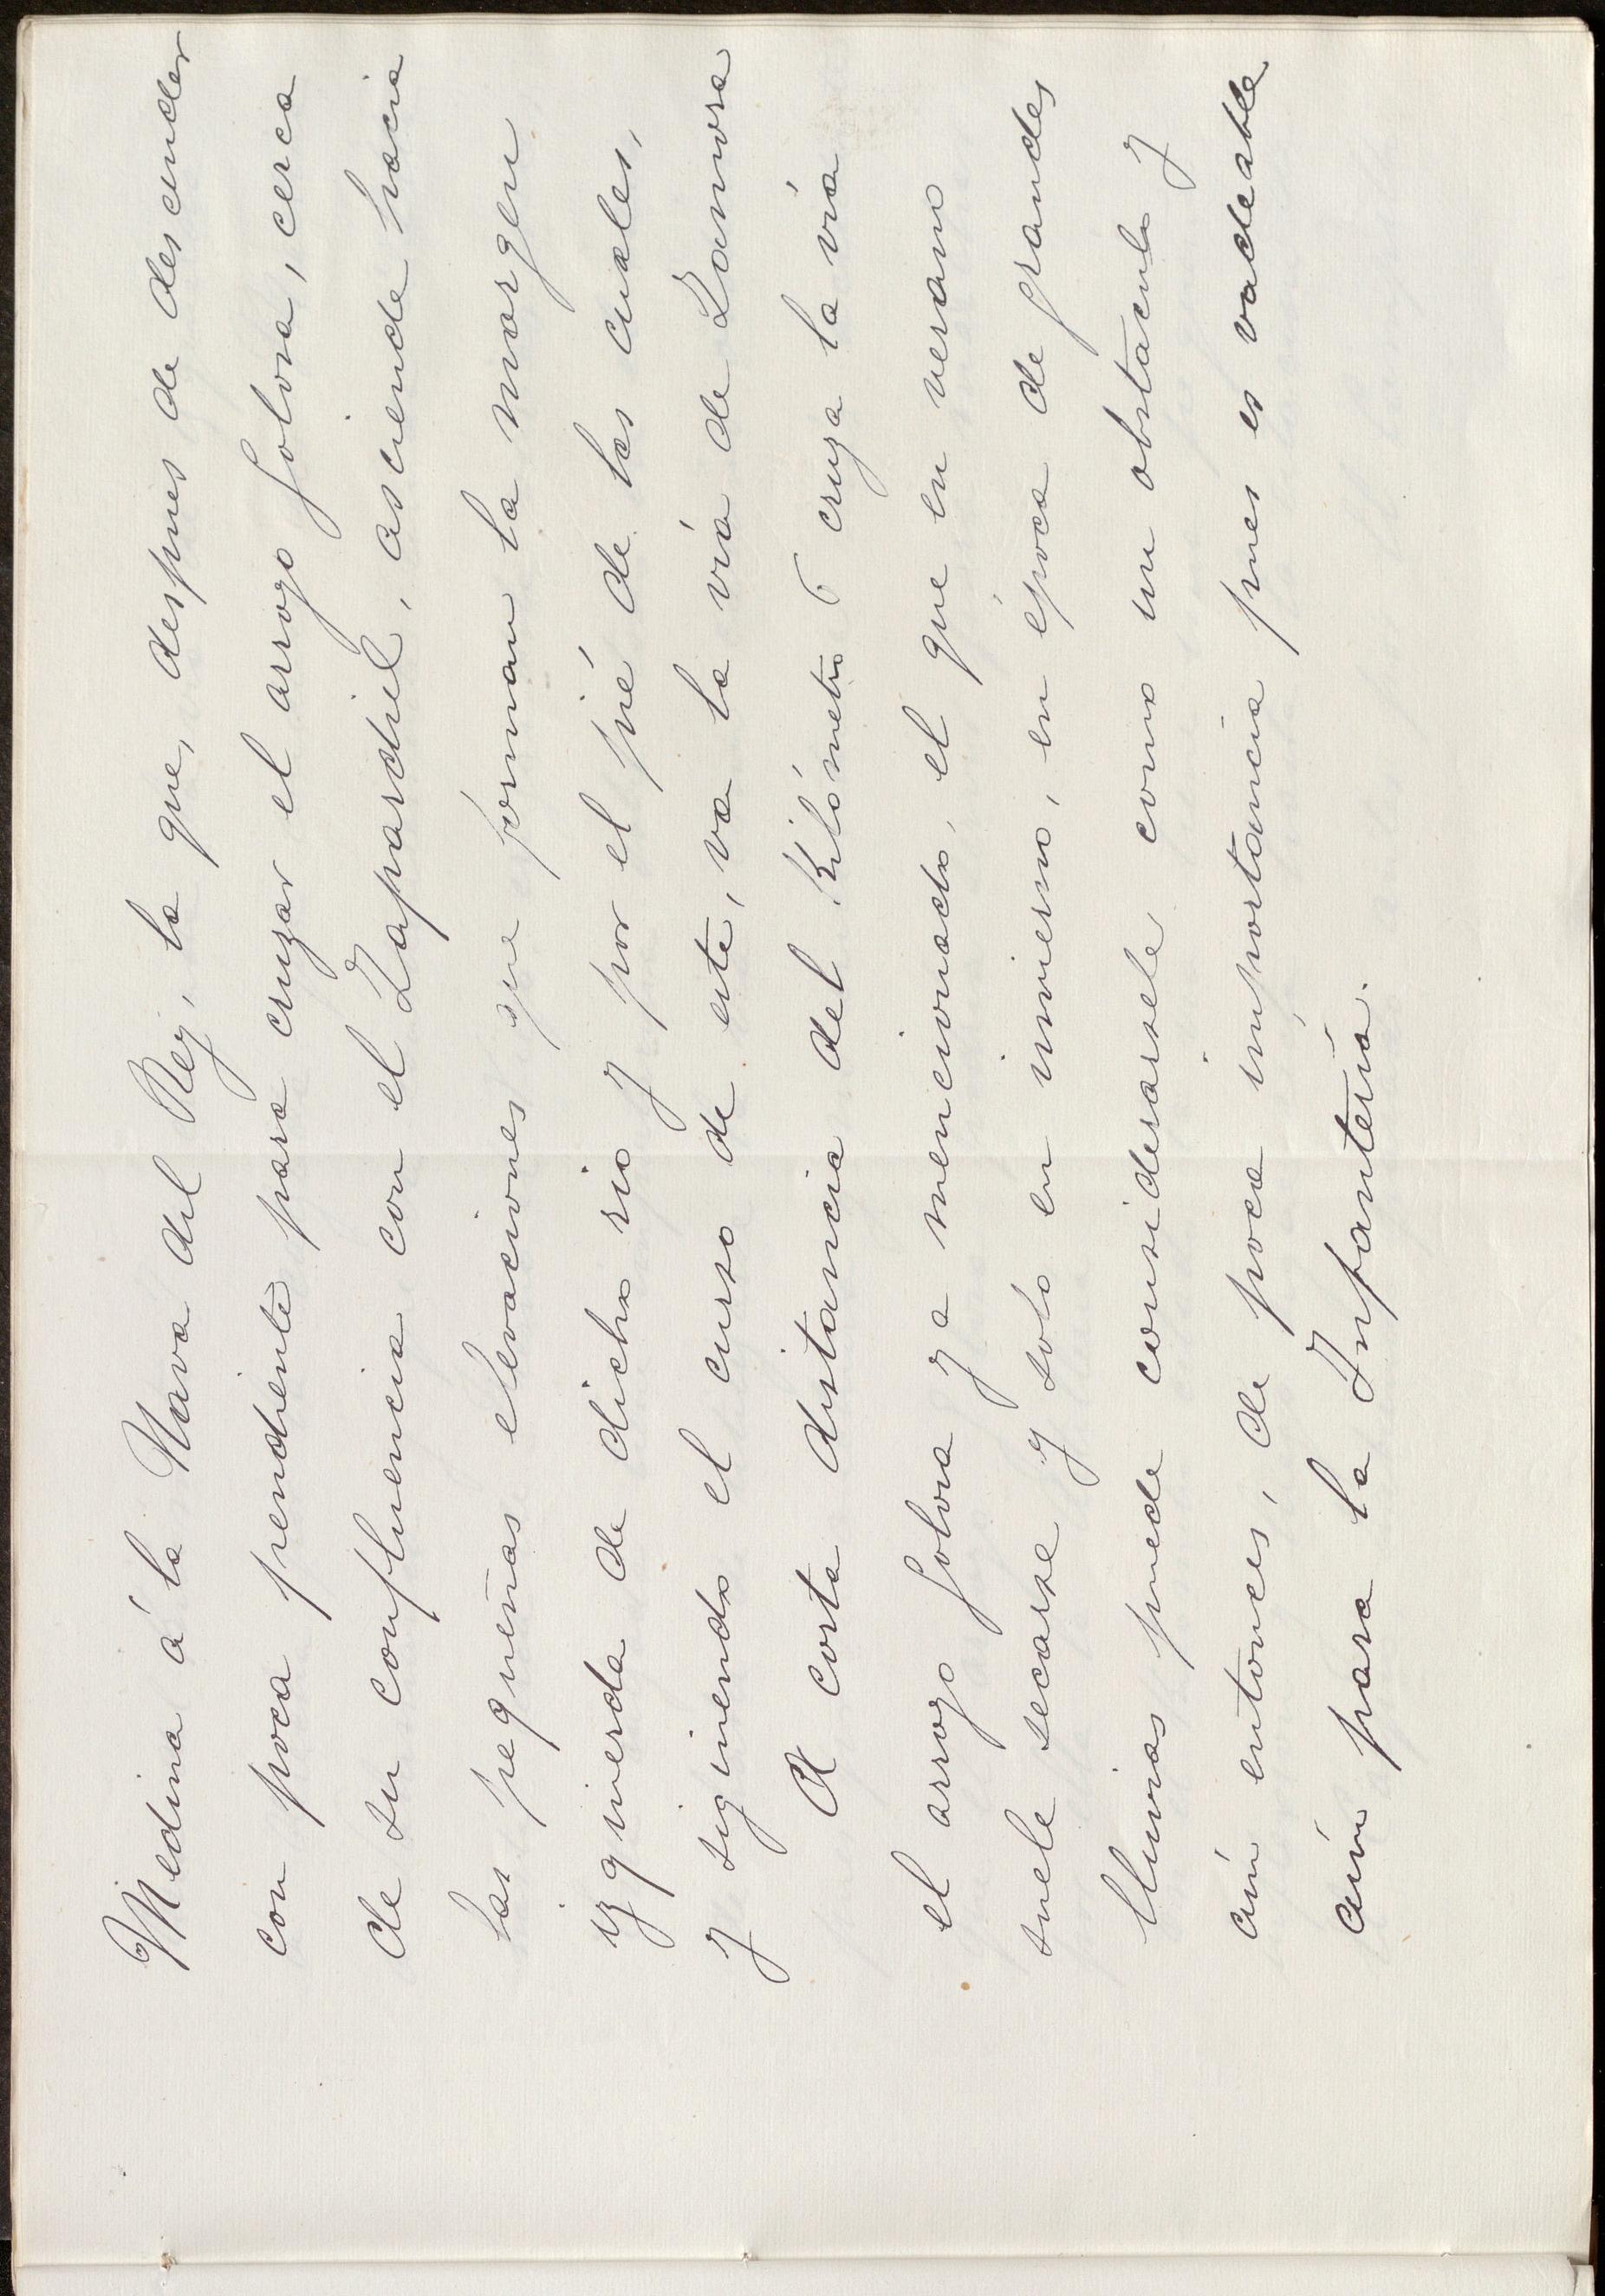 Medina á la Nava del Rey, la que, despues de descender
con poca pendiente para cruzar el arroyo Golosa, cerca
de su confluencia con el Zapardiel, asciende hacia
las pequeñas elevaciones que forman la margen
izquierda de dicho rio y por el pié de las cuales,
y siguiendo el curso de este, va la via de Zamora
A corta distancia del Kilómetro 6 cruza la vía
el arroyo Golosa ya mencionado, el que en verano
suele secarse y solo en invierno, en época de grandes
lluvias puede considerarsele como un obstaculo y
aún entonces, de poca importancia pues es vadeable
aún para la Infantería.